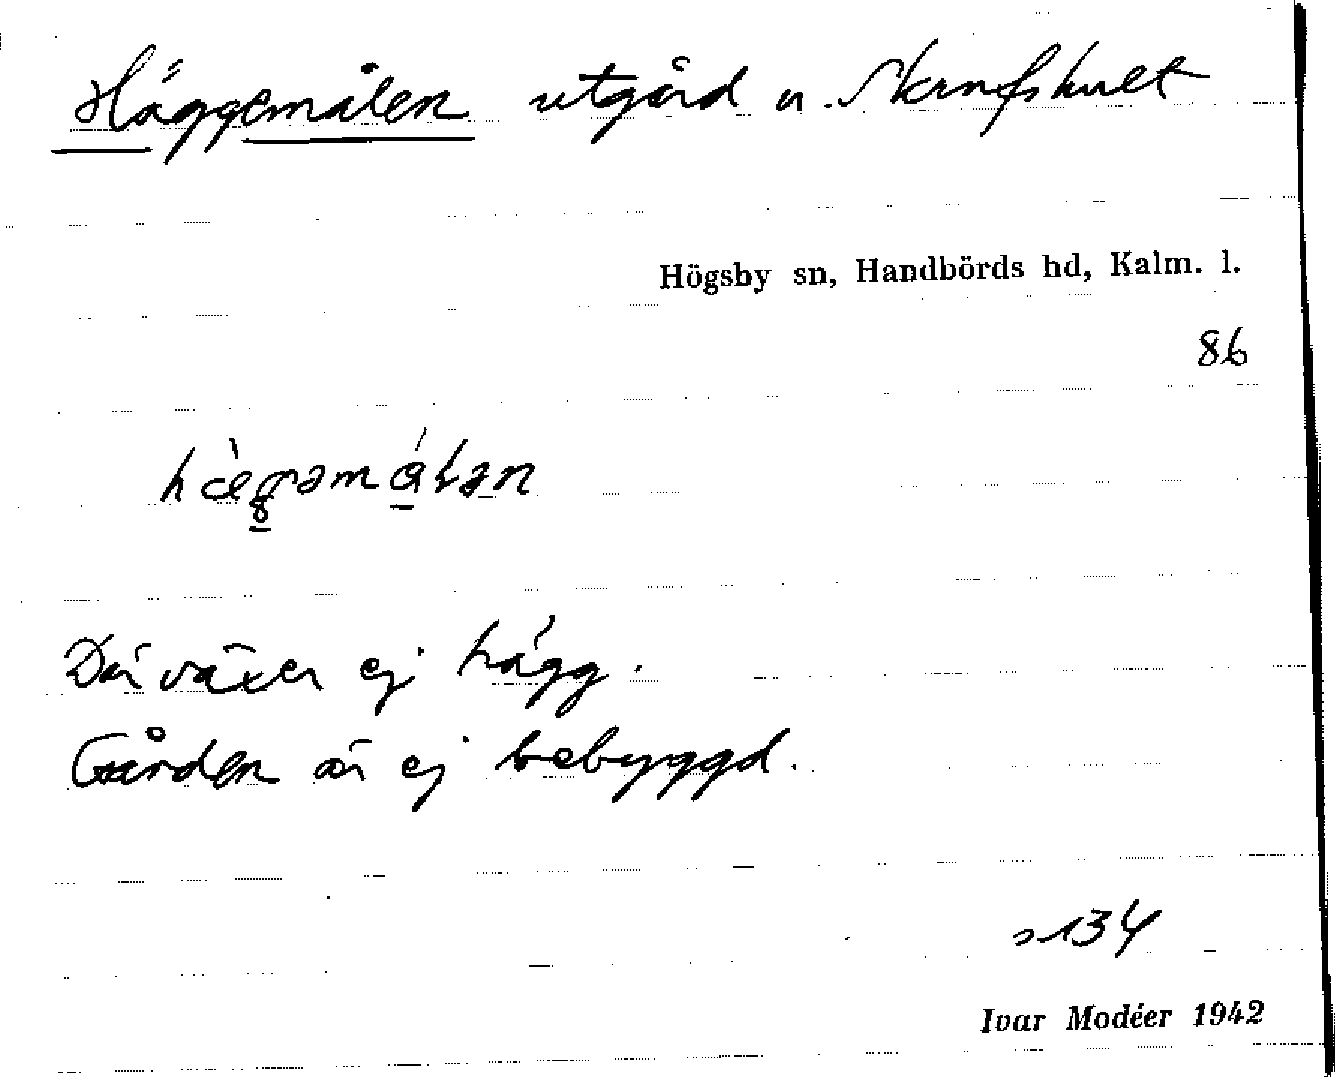 Häggemålen utgård u. Skrufshult
Högsby sn, Handbörds hd, Kalm. l.
86
Där växer ej hägg.
Gården är ej bebyggd.
s 134
Ivar Modéer 1942